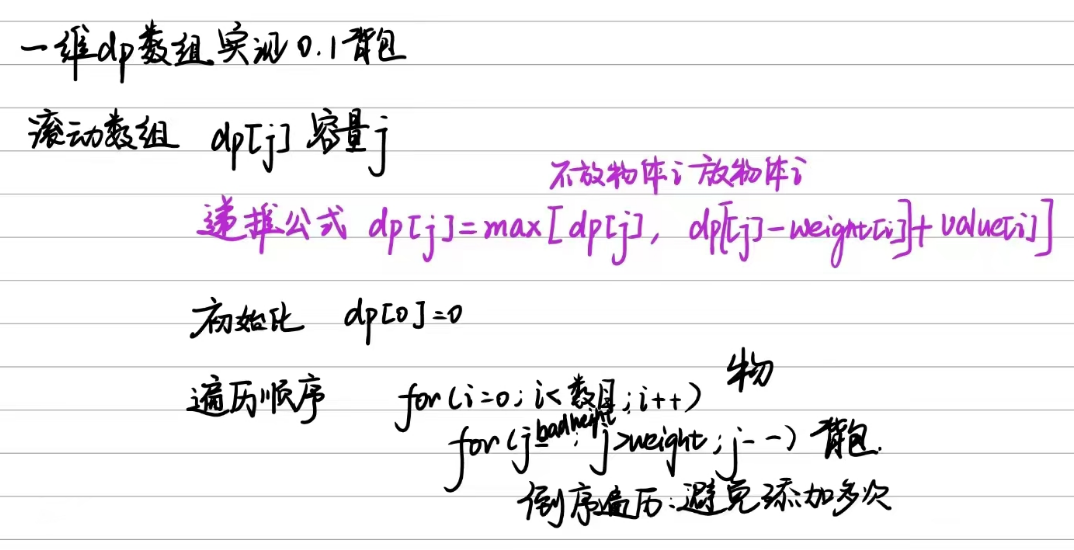 一维dp数组实现 0.1背包
滚动数组 dp[j] 容量j
不放物体i 放物体i
递推公式 dp[j]=max[dp[j], dp[[j]-weight[i]]+value[i]]
初始化 dp[0]=0
遍历顺序 for(i=0; i<数目; i++) 物
for(j= ; j>weight; j--) 背包.
倒序遍历:避免添加多次